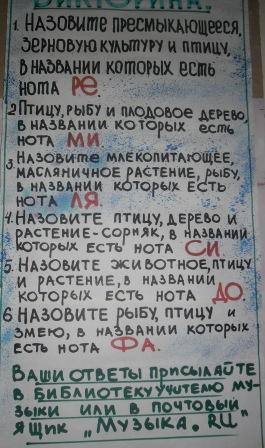 ВИКТОРИНА.
1. НАЗОВИТЕ ПРЕСМЫКАЮЩЕЕСЯ,
ЗЕРНОВУЮ КУЛЬТУРУ И ПТИЦУ,
В НАЗВАНИИ КОТОРЫХ ЕСТЬ
НОТА РЕ.
2 ПТИЦУ, РЫБУ И ПЛОДОВОЕ ДЕРЕВО,
В НАЗВАНИИ КОТОРЫХ ЕСТЬ
НОТА МИ.
3. НАЗОВИТЕ МЛЕКОПИТАЮЩЕЕ,
МАСЛЯНИЧНОЕ РАСТЕНИЕ, РЫБУ,
В НАЗВАНИИ КОТОРЫХ ЕСТЬ
НОТА ЛЯ.
4. НАЗОВИТЕ ПТИЦУ, ДЕРЕВО И
РАСТЕНИЕ-СОРНЯК, В НАЗВАНИИ
КОТОРЫХ ЕСТЬ НОТА СИ.
5. НАЗОВИТЕ ЖИВОТНОЕ, ПТИЦУ
И РАСТЕНИЕ, В НАЗВАНИИ
КОТОРЫХ ЕСТЬ НОТА ДО.
6 НАЗОВИТЕ РЫБУ, ПТИЦУ И
ЗМЕЮ, В НАЗВАНИИ КОТОРЫХ
ЕСТЬ НОТА ФА.
ВАШИ ОТВЕТЫ ПРИСЫЛАЙТЕ
В БИБЛИОТЕКУ УЧИТЕЛЮ МУ-
ЗЫКИ ИЛИ В ПОЧТОВЫЙ
ЯЩИК „МУЗЫКА. RU"